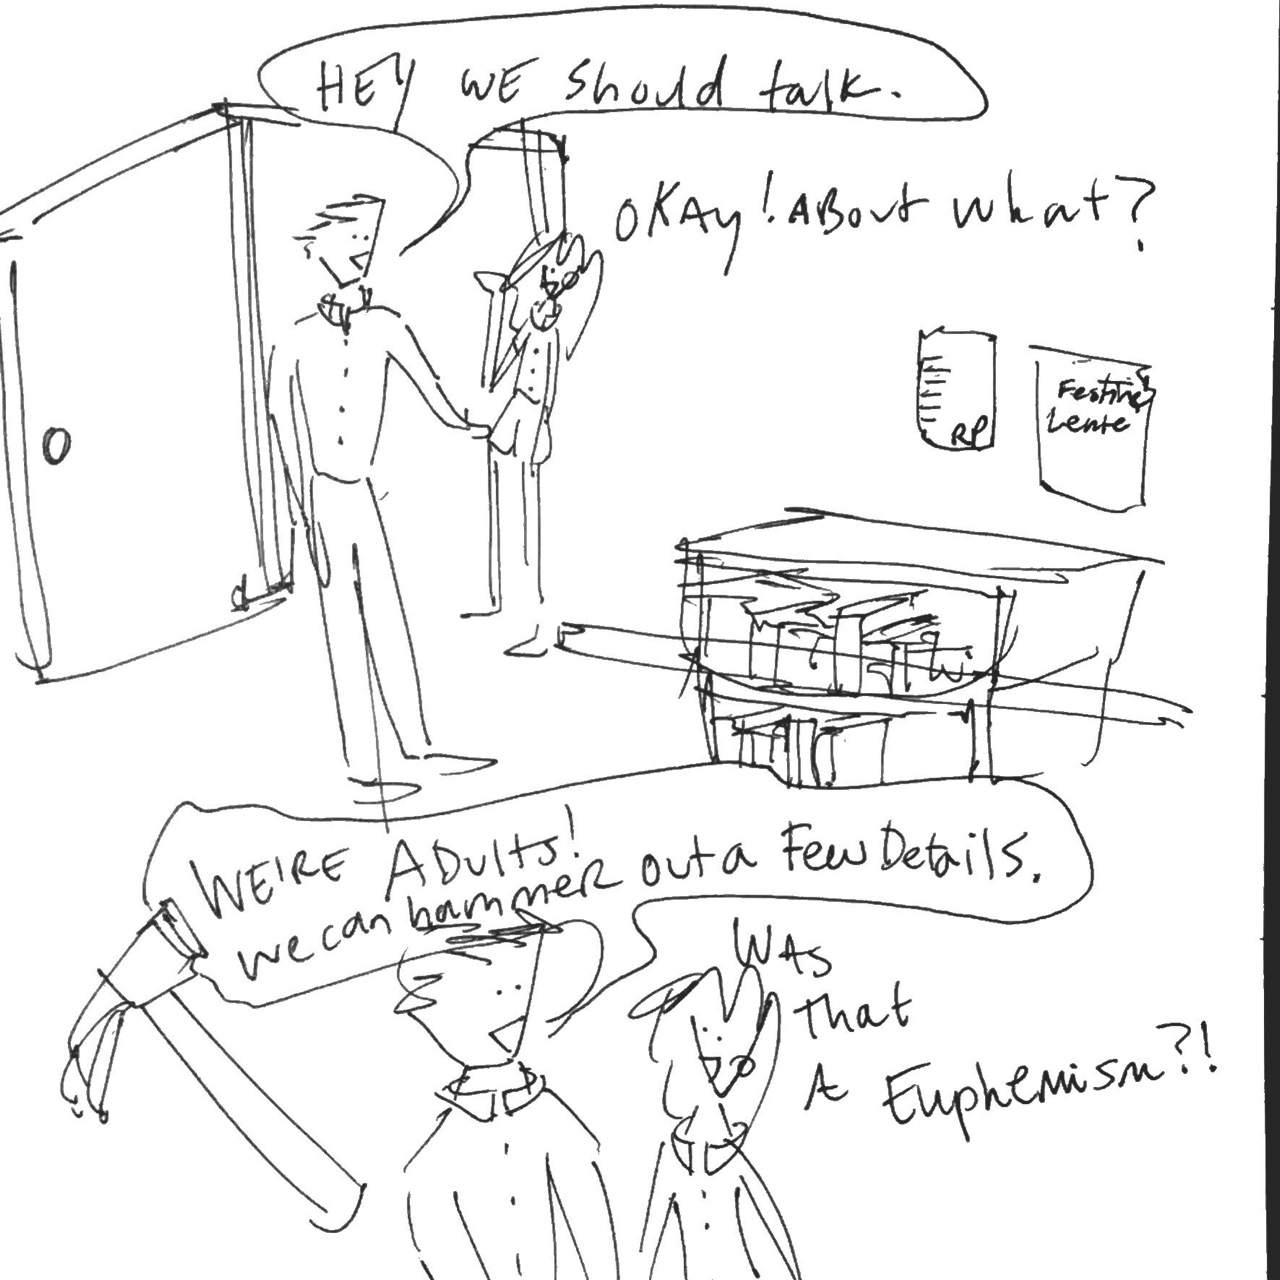 HEY WE should talk.
OKAY! ABout what?
RP
Festina
Lente
WE'RE ADults!
we can hammer out a Few Details.
WAS
that
A Euphemism?!